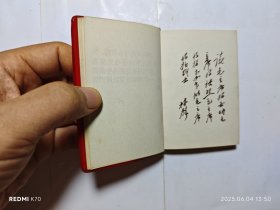 读毛主席的书听毛
主席的话照毛主席
的指示办事做毛主席
的好战士
林彪
REDMI K70
2025.06.04 13:50